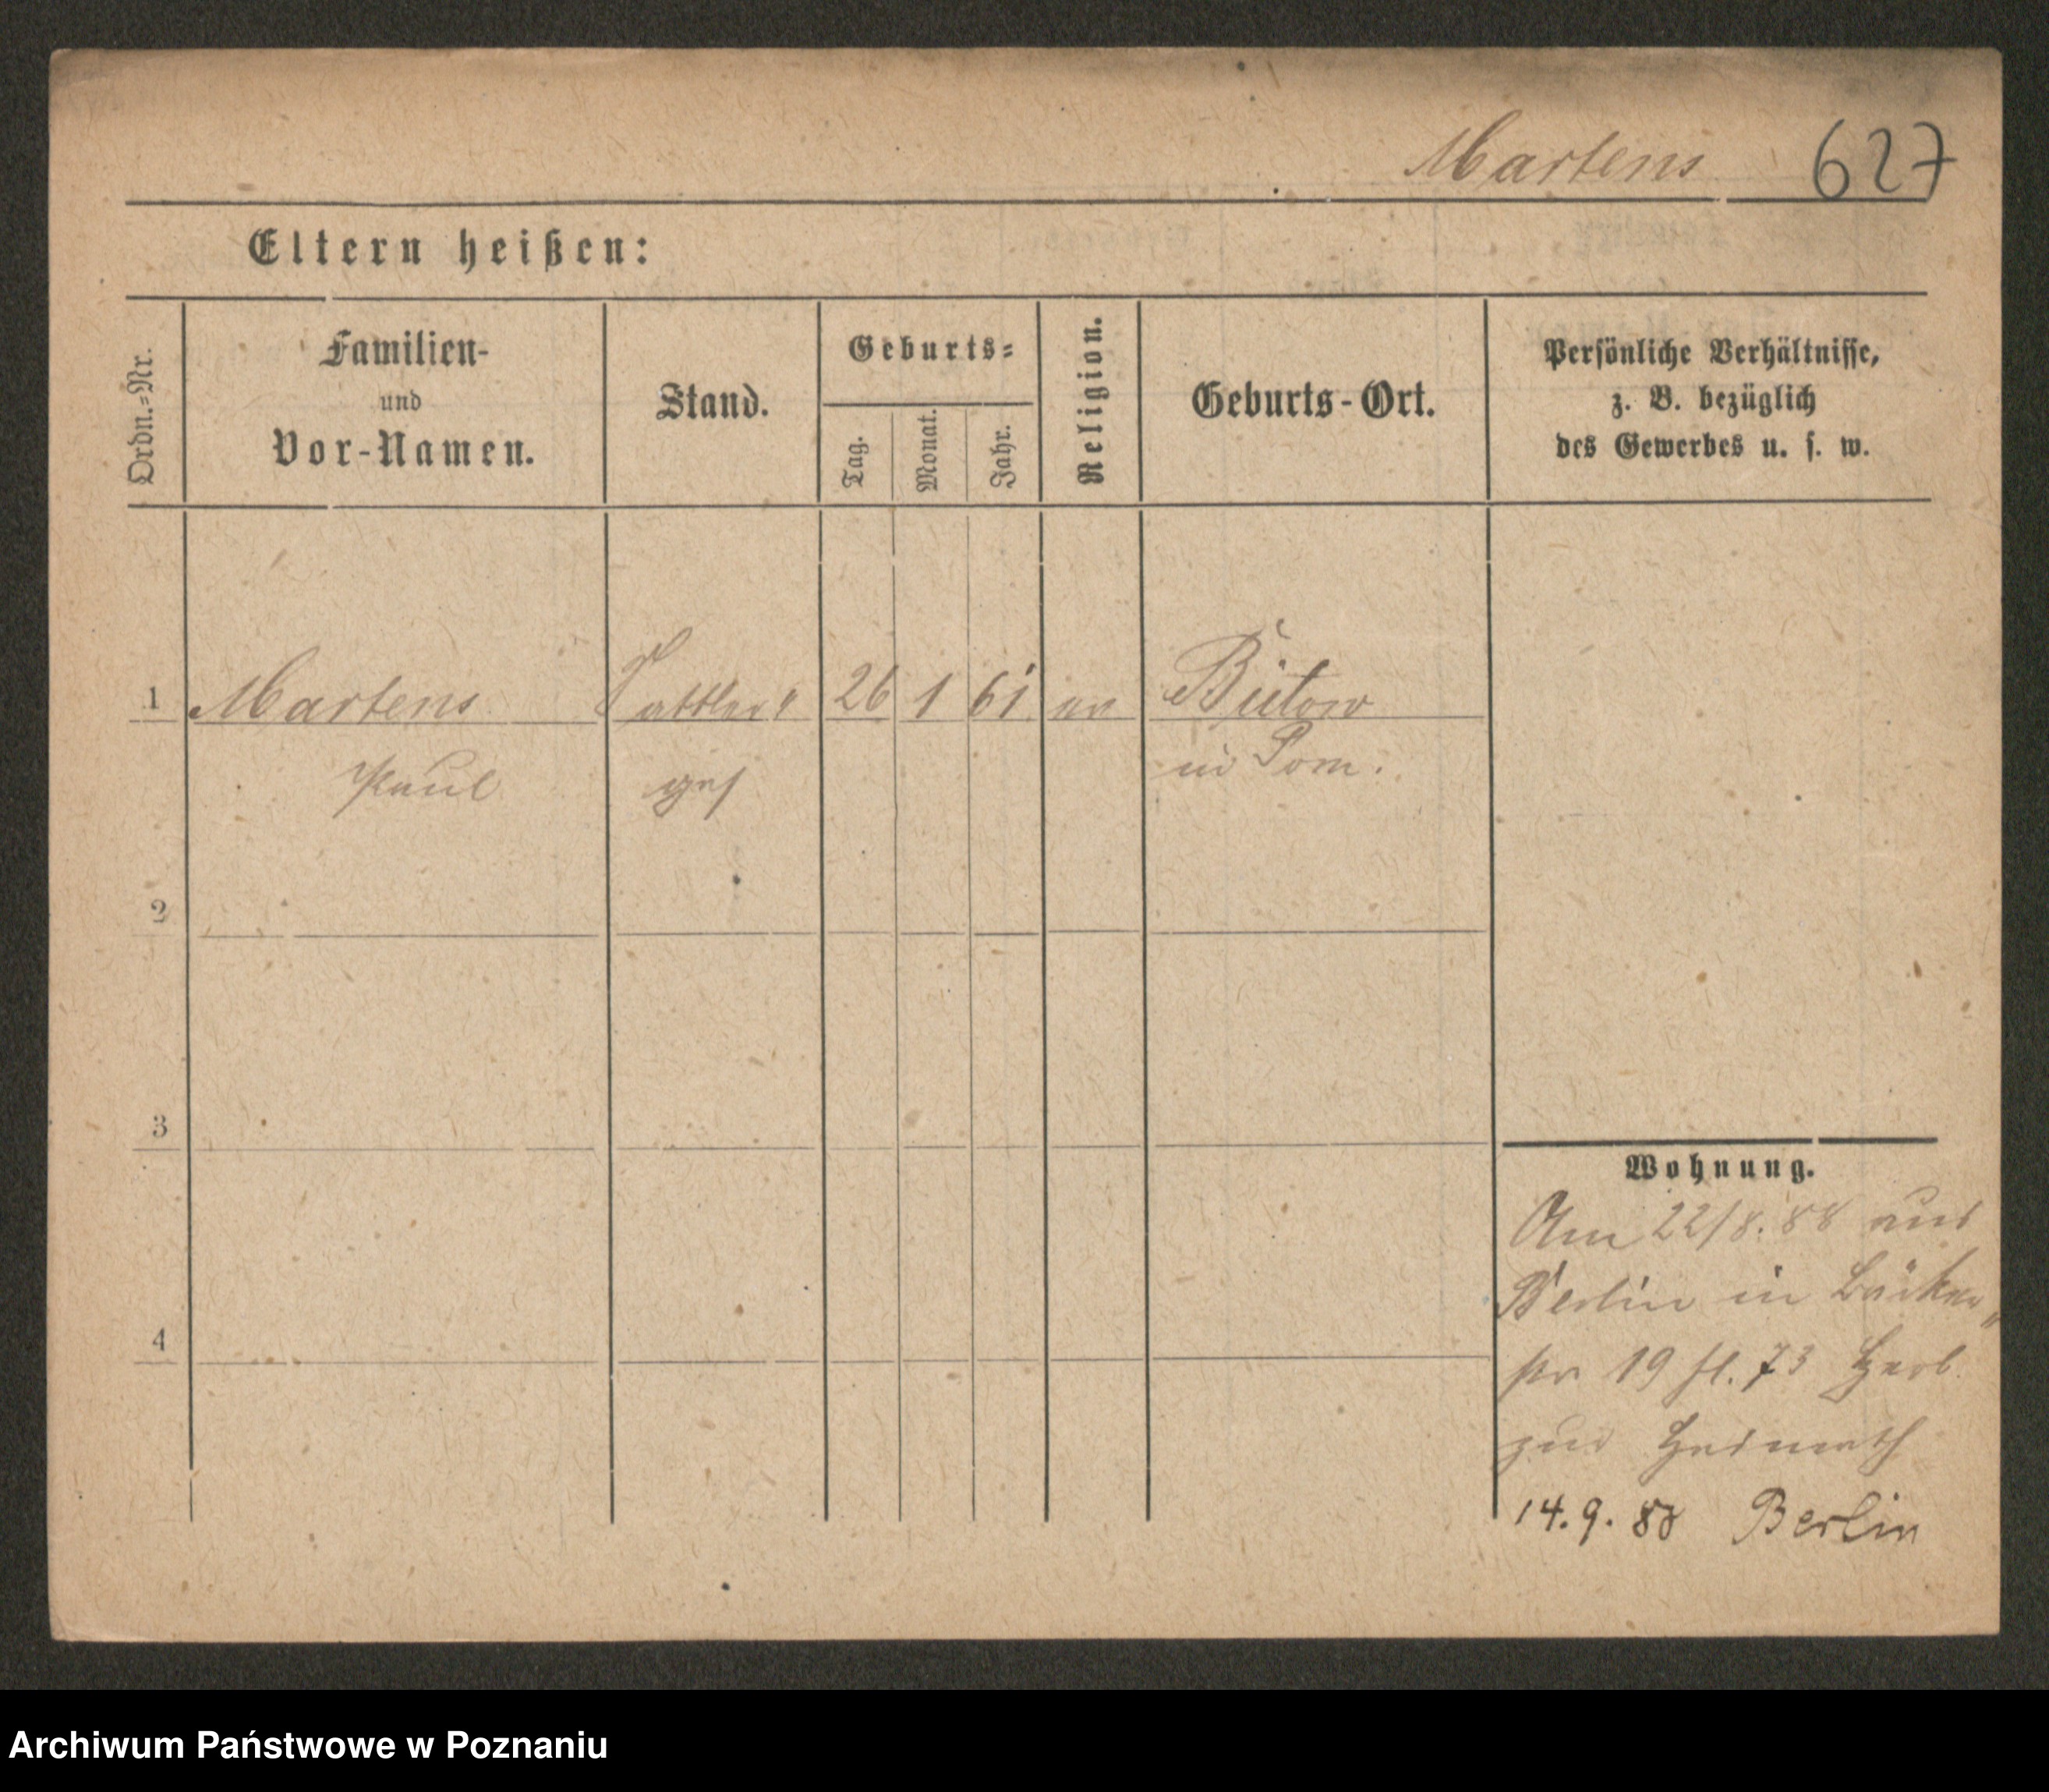 Martens 627
Eltern heißen:
Ordn.=Nr.
Familien-
und
Vor-Namen.
Stand.
Geburts=
Tag.
Monat.
Jahr.
Religion.
Geburts-Ort.
Persönliche Verhältnisse,
z. B. bezüglich
des Gewerbes u. s. w.
1 Martens Sattler" 26 1 61 ev Bütow
Paul ges in Pom.
2
3
4
Wohnung.
Am 22/8. 88 aus
Berlin in Bäcker"
str 19 fl. 73 Herb.
zur Heimath
14.9.88 Berlin
Archiwum Państwowe w Poznaniu